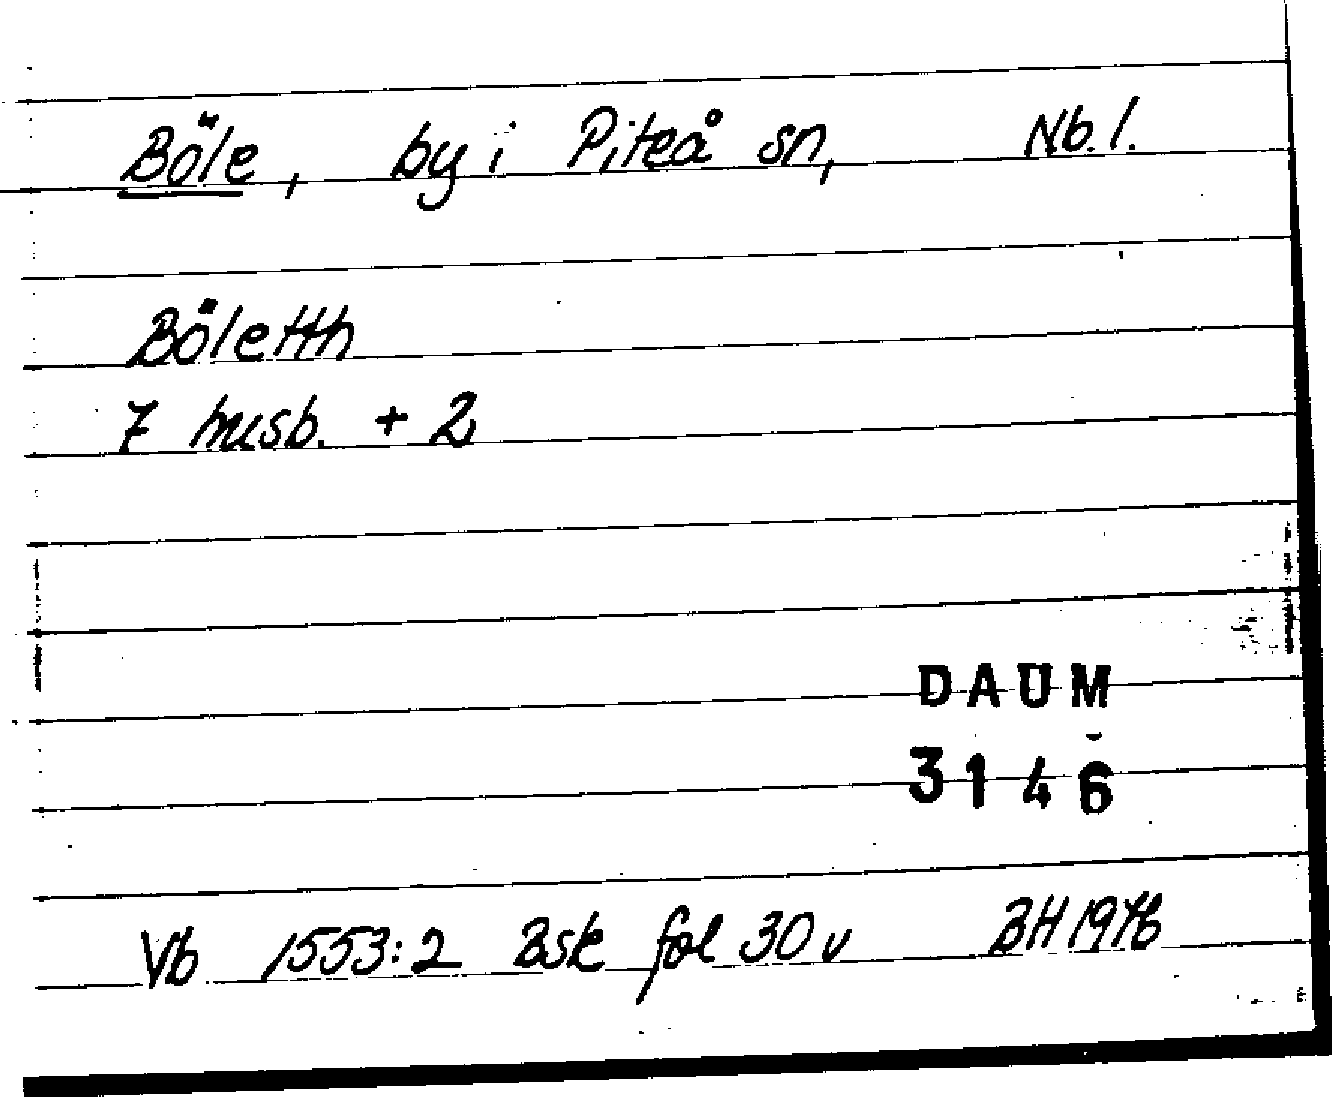 Böle, by i Piteå sn, Nb. l.
Böletth
7 husb. + 2
DAUM
3146
Vb 1553:2 Bsk fol 30 v BH 1976